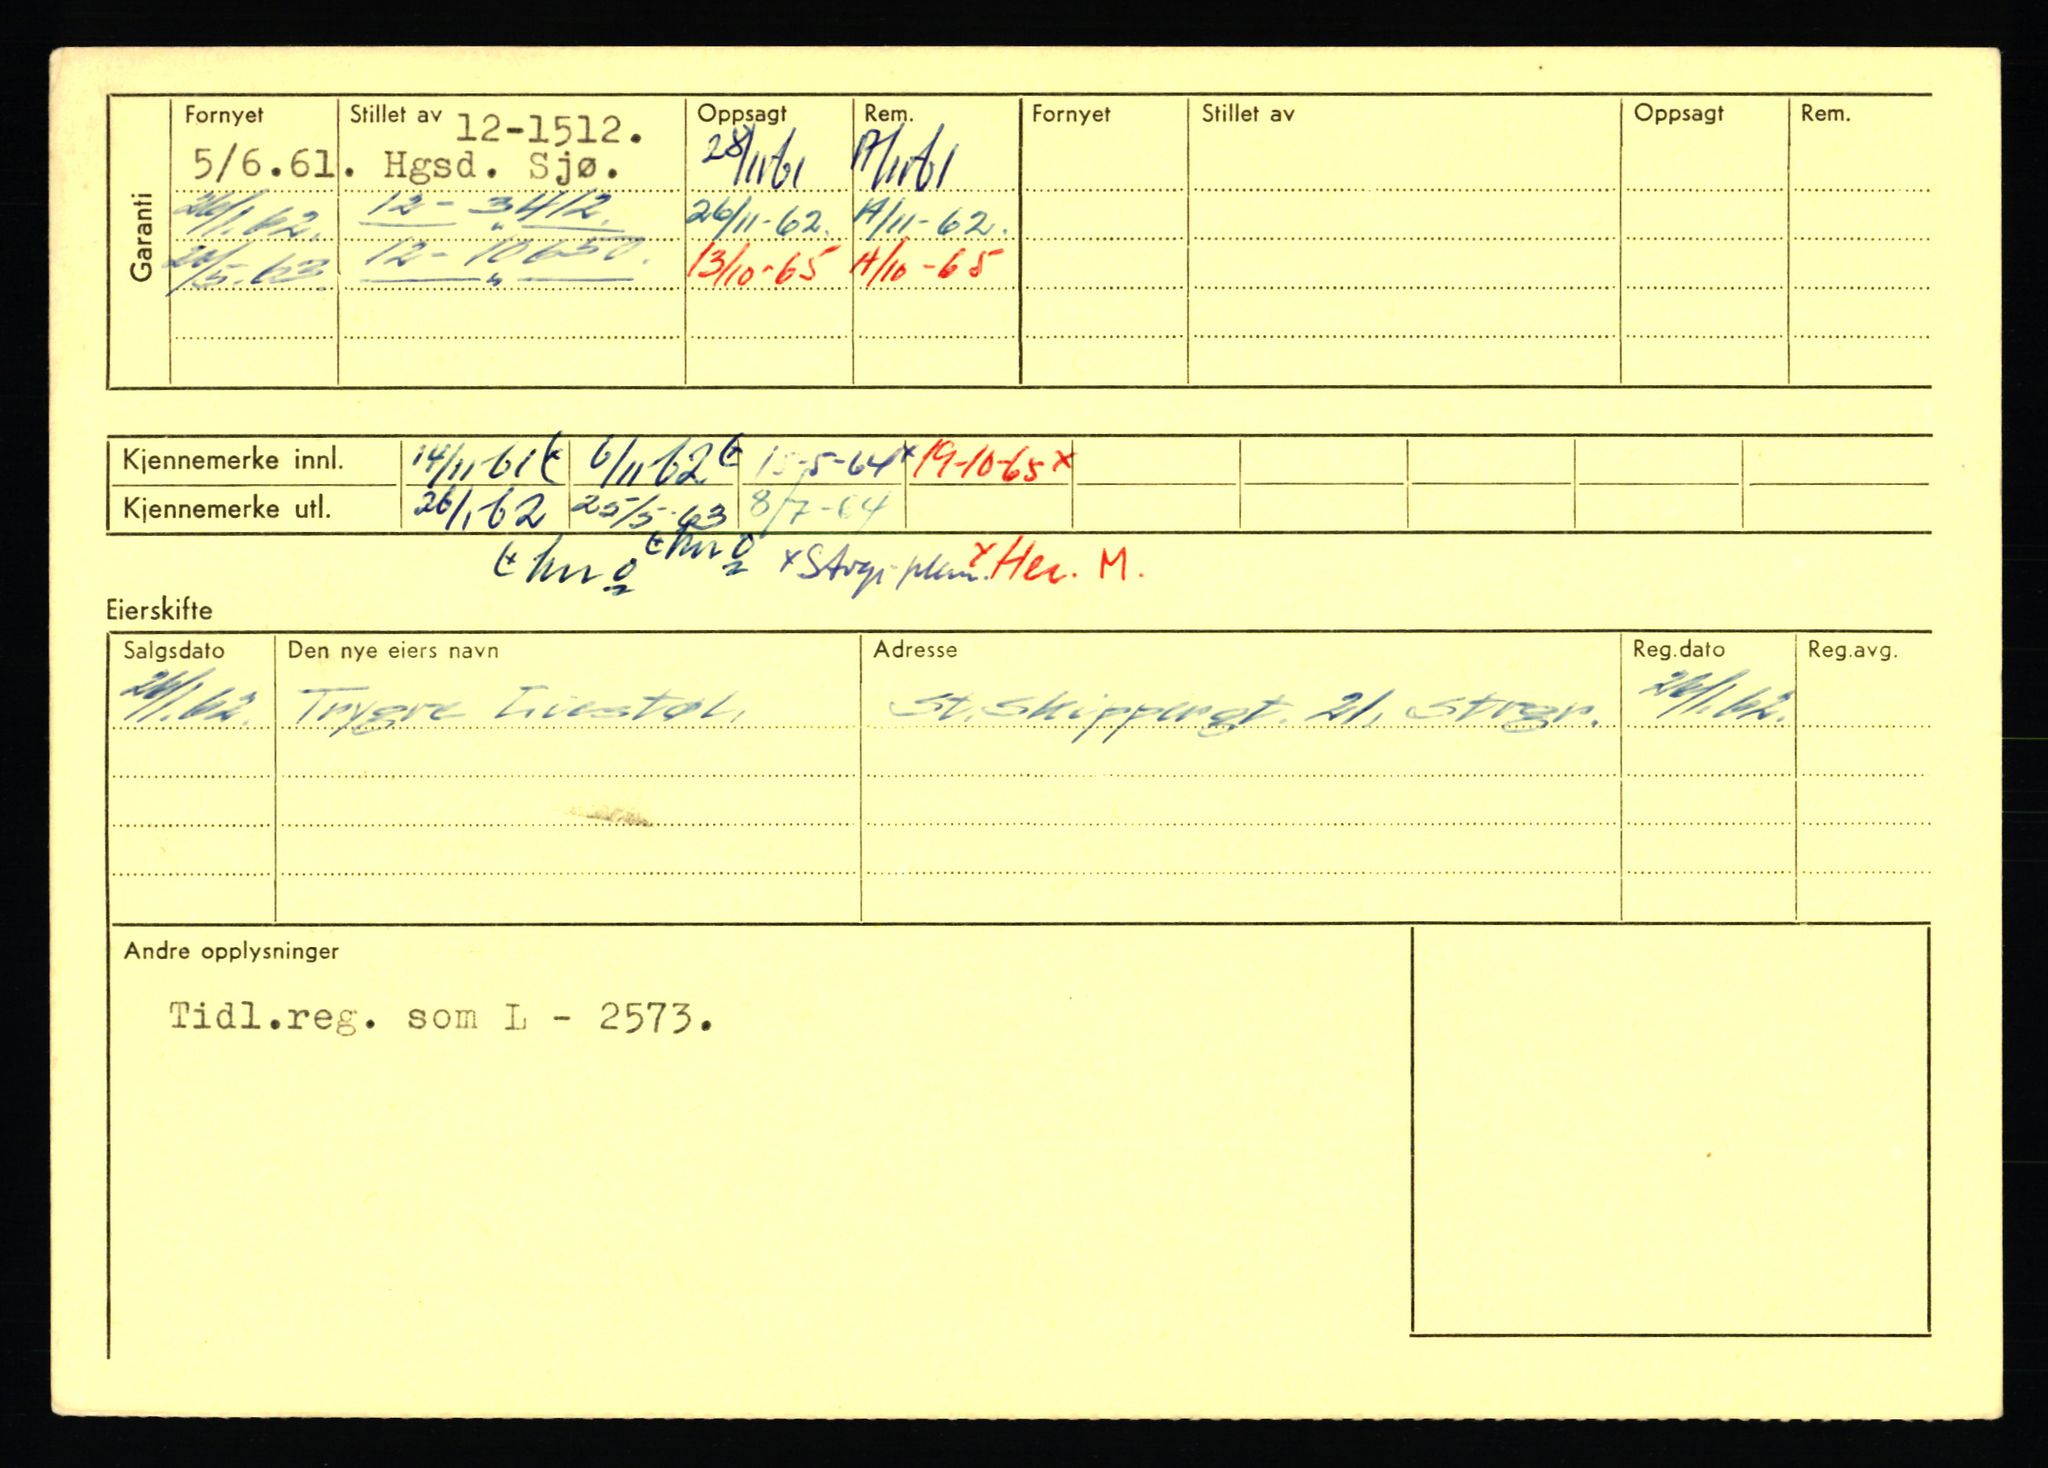 Garanti
Fornyet Stillet av Oppsagt Rem. Fornyet Stillet av Oppsagt Rem.
12-1512.
5/6.61. Hgsd. Sjø. 28/11 61 A/11 61
26/1.62. 12 - 3412. 26/11-62. A/11-62.
/5.63. 12 - 10650. 13/10-65 A/10-65
Kjennemerke innl. 14/11 61 6/11 62 15-5-64 x 19-10-65 x
Kjennemerke utl. 26/1 62 25/5-63 8/7-64
x Her. M.
Eierskifte
Salgsdato Den nye eiers navn Adresse Reg.dato Reg.avg.
26/1.62. Trygve Liestøl, St. Skippergt. 21, Stvgr. 26/1.62.
Andre opplysninger
Tidl.reg. som L - 2573.